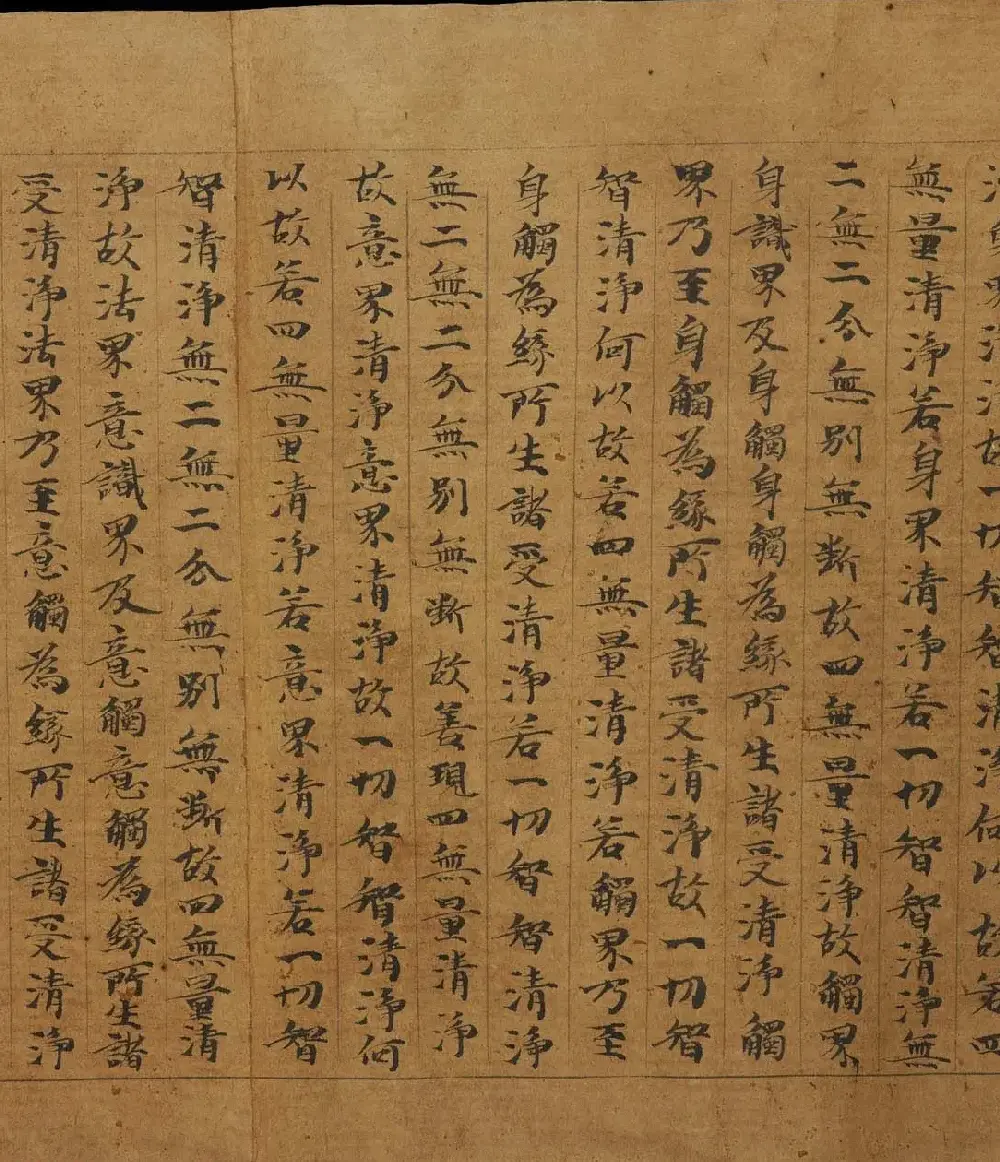 界清淨故一切智智清淨何以故若四
無量清淨若身界清淨若一切智智清淨無
二無二分無別無斷故四無量清淨故觸界
身識界及身觸身觸為緣所生諸受清淨觸
界乃至身觸為緣所生諸受清淨故一切智
智清淨何以故若四無量清淨若觸界乃至
身觸為緣所生諸受清淨若一切智智清淨
無二無二分無別無斷故善現四無量清淨
故意界清淨意界清淨故一切智智清淨何
以故若四無量清淨若意界清淨若一切智
智清淨無二無二分無別無斷故四無量清
淨故法界意識界及意觸意觸為緣所生諸
受清淨法界乃至意觸為緣所生諸受清淨